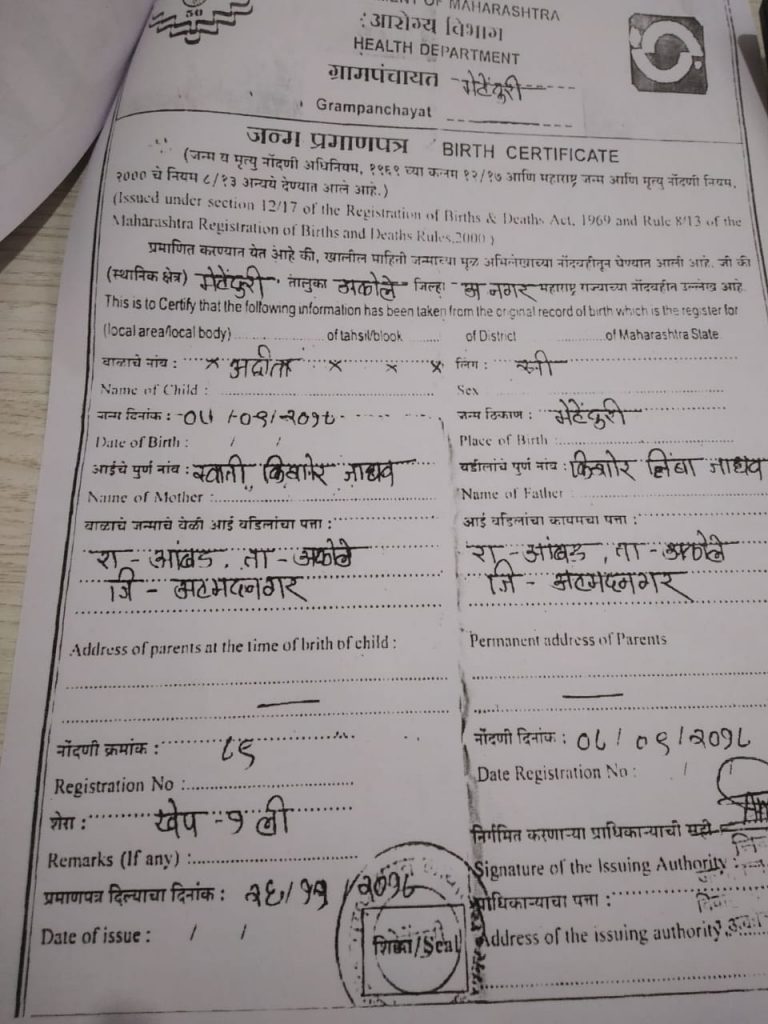 50
MENT OF MAHARASHTRA
आरोग्य विभाग
HEALTH DEPARTMENT
ग्रामपंचायत
Grampanchayat
जन्म प्रमाणपत्र BIRTH CERTIFICATE
(जन्म व मृत्यु नोंदणी अधिनियम, १९६९ च्या कलम १२/१७ आणि महाराष्ट्र जन्म आणि मृत्यु नोंदणी नियम,
2000 चे नियम ८/१३ अन्वये देण्यात आले आहे.)
(Issued under section 12/17 of the Registration of Births & Deaths Act, 1969 and Rule 8/13 of the
Maharashtra Registration of Births and Deaths Rules,2000 )
प्रमाणित करण्यात येत आहे की, खालील माहिती जन्माच्या मूळ अभिलेखाच्या नोंदवहीतून घेण्यात आली आहे. जी की
(स्थानिक क्षेत्र) तालुका अकोले जिल्हा अ नगर महाराष्ट्र राज्याच्या नोंदवहीत उल्लेख आहे.
This is to Certify that the following information has been taken from the original record of birth which is the register for
(local area/local body) of tahsil/block of District of Maharashtra State
बाळाचे नांव : x x x x लिंग : स्त्री
Name of Child : Sex
जन्म दिनांक : जन्म ठिकाण :
Date of Birth : / / Place of Birth :
आईचे पुर्ण नांव : स्वाती किशोर जाधव वडीलांचे पुर्ण नांव : किशोर लिंबा जाधव
Name of Mother : Name of Father :
बाळाचे जन्माचे वेळी आई वडिलांचा पत्ता : आई वडिलांचा कायमचा पत्ता :
रा - आंबड, ता - अकोले रा - आंबड, ता - अकोले
जि - अहमदनगर जि - अहमदनगर
Address of parents at the time of brith of child : Permanent address of Parents
नोंदणी क्रमांक : ८९ नोंदणी दिनांक : ०८/०९/२०१८
Registration No : Date Registration No : / /
शेरा : खेप - १ ली
Remarks (If any) : निर्गमित करणाऱ्या प्राधिकाऱ्याची सही
Signature of the Issuing Authority :
प्रमाणपत्र दिल्याचा दिनांक : २६/११/२०१८ प्राधिकाऱ्याचा पत्ता :
Date of issue : / / शिक्का/Seal Address of the issuing authority